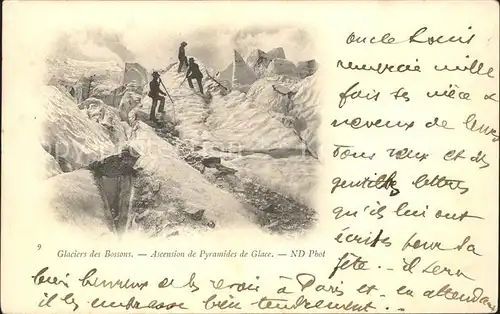 oncle Louis
remercie mille
fois ses nièce &
neveux de leurs
bons vœux et des
gentilles lettres
qu'ils lui ont
écrites pour sa
fête... il sera
9
Glaciers des Bossons. — Ascension de Pyramides de Glace. — ND Phot
bien heureux de les revoir à Paris et en attendant
il les embrasse bien tendrement...